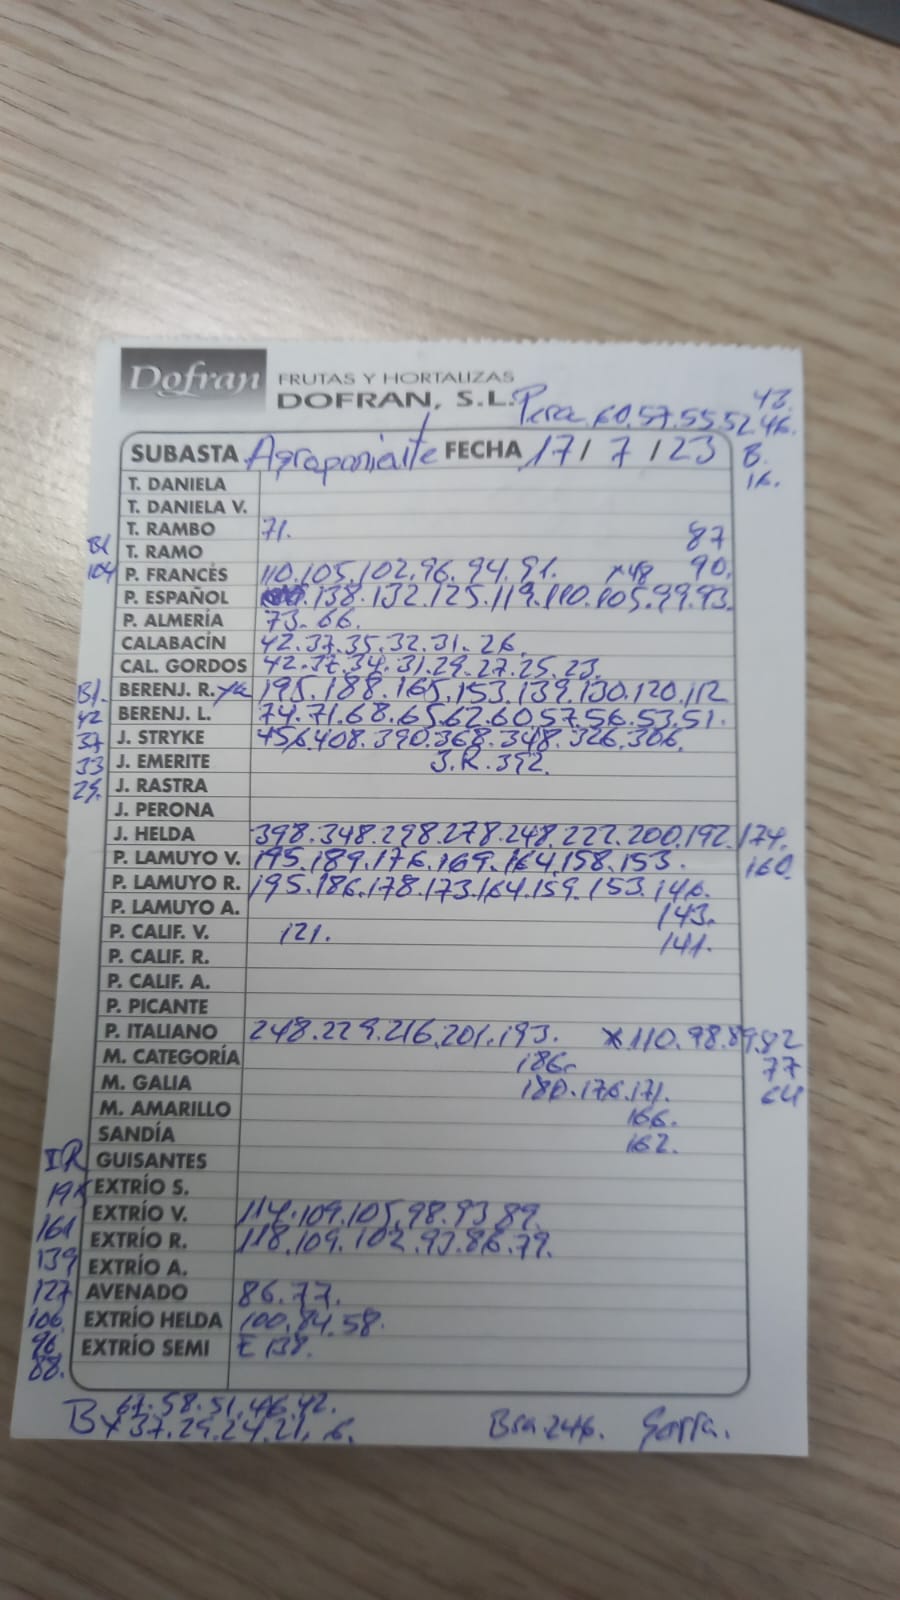 Dofran FRUTAS Y HORTALIZAS
DOFRAN, S.L. Pera 60.57.55.52.46. 43.
SUBASTA Agroponiente FECHA 17/7/23 B.
T. DANIELA 16.
T. DANIELA V.
T. RAMBO 71. 87
Bl T. RAMO 90.
104 P. FRANCÉS 110.105.102.96.94.91. x48
P. ESPAÑOL .138.132.125.119.110.105.99.93.
P. ALMERÍA 73.66.
CALABACÍN 42.37.35.32.31.26.
CAL. GORDOS 42.37.34.31.29.27.25.23.
Bl. BERENJ. R. 195.188.165.153.139.130.120.112
42 BERENJ. L. 74.71.68.65.62.60.57.56.53.51.
37 J. STRYKE 456.408.390.368.348.326.306.
33 J. EMERITE J.R.392.
29. J. RASTRA
J. PERONA
J. HELDA 398.348.298.278.248.222.200.192.174.
P. LAMUYO V. 195.189.176.169.164.158.153. 160.
P. LAMUYO R. 195.186.178.173.164.159.153.146.
P. LAMUYO A. 143.
P. CALIF. V. 121. 141.
P. CALIF. R.
P. CALIF. A.
P. PICANTE
P. ITALIANO 248.229.216.201.193. x110.98.89.82
M. CATEGORÍA 186. 77
M. GALIA 180.176.171. 64
M. AMARILLO 166.
SANDÍA 162.
IR GUISANTES
EXTRÍO S.
161 EXTRÍO V. 114.109.105.98.93.89.
139 EXTRÍO R. 118.109.102.93.86.79.
EXTRÍO A.
127 AVENADO 86.77.
106 EXTRÍO HELDA 100.84.58.
96 EXTRÍO SEMI E 138.
88.
B 67.58.51.46.42.
x 37.29.24.21.
Bsa 246.